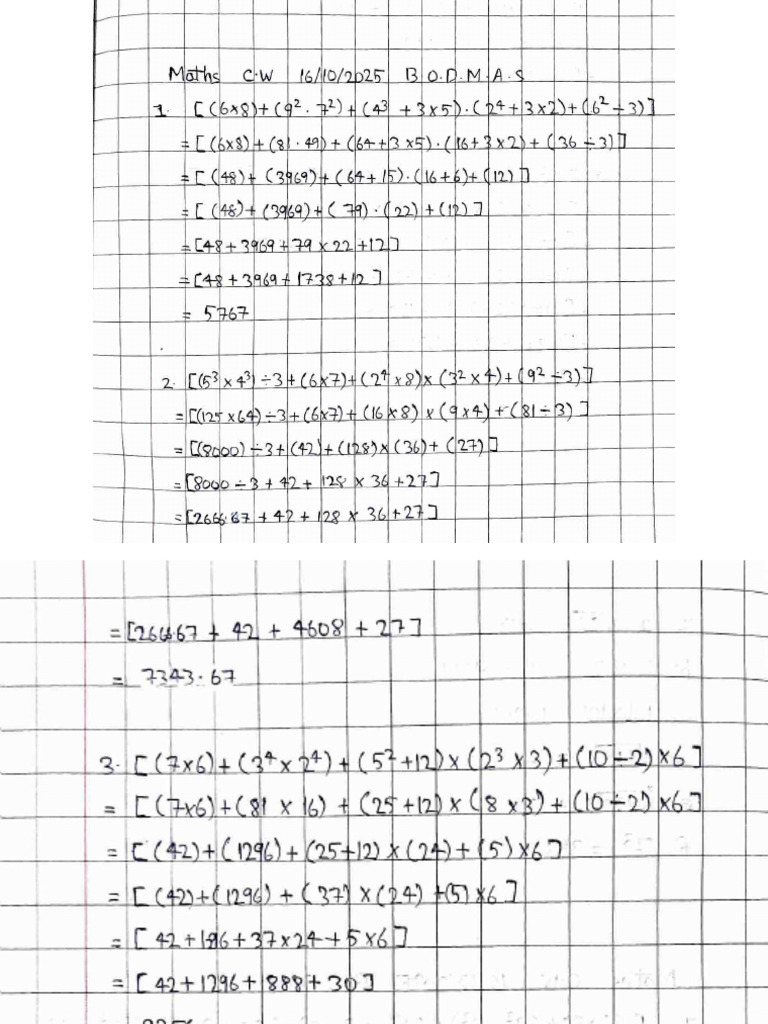 Maths C.W 16/10/2025 B.O.D.M.A.S
1. [(6×8)+(9²·7²)+(4³+3×5)·(2⁴+3×2)+(6²÷3)]
=[(6×8)+(81·49)+(64+3×5)·(16+3×2)+(36÷3)]
=[(48)+(3969)+(64+15)·(16+6)+(12)]
=[(48)+(3969)+(79)·(22)+(12)]
=[48+3969+79×22+12]
=[48+3969+1738+12]
= 5767
2. [(5³×4³)÷3+(6×7)+(2⁴×8)×(3²×4)+(9²÷3)]
=[(125×64)÷3+(6×7)+(16×8)×(9×4)+(81÷3)]
=[(8000)÷3+(42)+(128)×(36)+(27)]
=[8000÷3+42+128×36+27]
=[2666.67+42+128×36+27]
=[2666.67+42+4608+27]
= 7343.67
3. [(7×6)+(3⁴×2⁴)+(5²+12)×(2³×3)+(10÷2)×6]
= [(7×6)+(81×16)+(25+12)×(8×3)+(10÷2)×6]
= [(42)+(1296)+(25+12)×(24)+(5)×6]
= [(42)+(1296)+(37)×(24)+(5)×6]
= [42+1296+37×24+5×6]
= [42+1296+888+30]